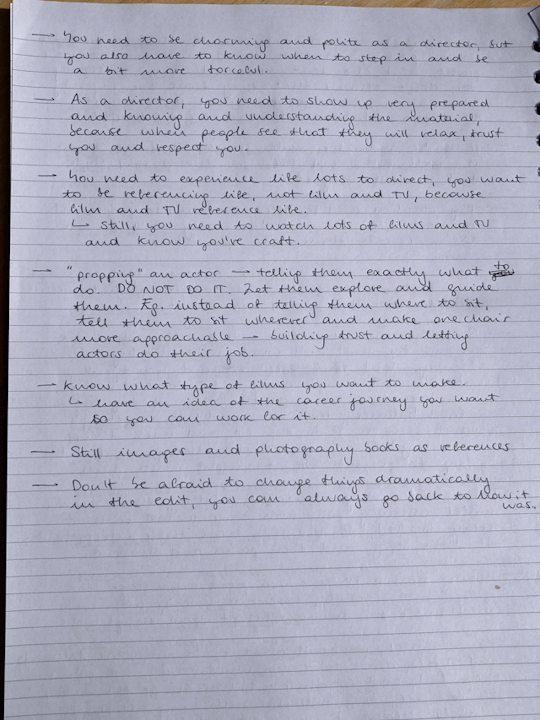 — You need to be charming and polite as a director, but
you also have to know when to step in and be
a bit more forceful.
— As a director, you need to show up very prepared
and knowing and understanding the material,
because when people see that they will relax, trust
you and respect you.
— You need to experience life lots to direct, you want
to be referencing life, not film and TV, because
film and TV reference life.
↳ Still, you need to watch lots of films and TV
and know you've craft.
— "propping" an actor — telling them exactly what to
do. DO NOT DO IT. Let them explore and guide
them. Eg. instead of telling them where to sit,
tell them to sit wherever and make one chair
more approachable — building trust and letting
actors do their job.
— Know what type of films you want to make.
↳ have an idea of the career journey you want
so you can work for it.
— Still images and photography books as references
— Don't be afraid to change things dramatically
in the edit, you can always go back to how it
was.